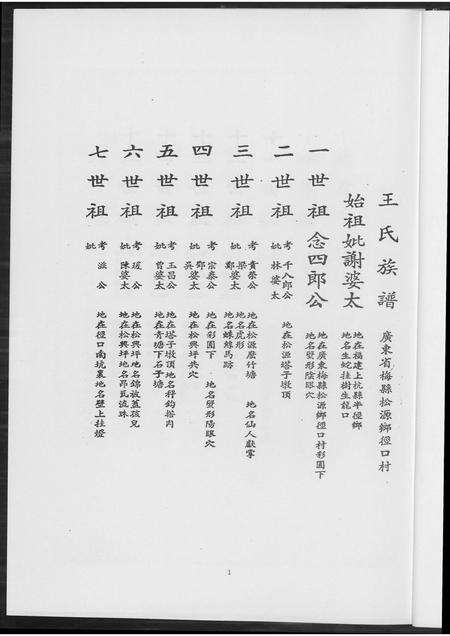 王氏族譜 廣東省梅縣松源鄉徑口村
始祖妣謝婆太 地在福建上杭縣半徑鄉
地名生蛇挂樹生龍口
一世祖 念四郎公 地在廣東梅縣松源鄉徑口村彩圓下
地名蟹形陰眼穴
二世祖 考 千八郎公
妣 林婆太 地在松源塔子墩頂
三世祖 考 貴榮公 地在松源磨竹塘 地名仙人獻掌
梁 地名虎形
妣 鄭婆太 地名蛛絲馬跡
四世祖 考 宗泰公 地在彩圓下 地名蟹形陽眼穴
鄧
妣 吳婆太 地在松興坪共穴
五世祖 考 玉昌公 地在塔子墩頂地名秤鈎搭肉
妣 曾婆太 地在青塘下石子塘
六世祖 考 瑤公 地在松興坪地名錦被蓋孩兒
妣 陳婆太 地在松興坪地名昂瓦流珠
七世祖 考 滋公 地在徑口南坑裏地名壁上挂燈
妣
1